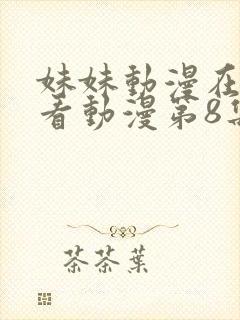 妹妹動漫在
看動漫第8集
茶茶葉